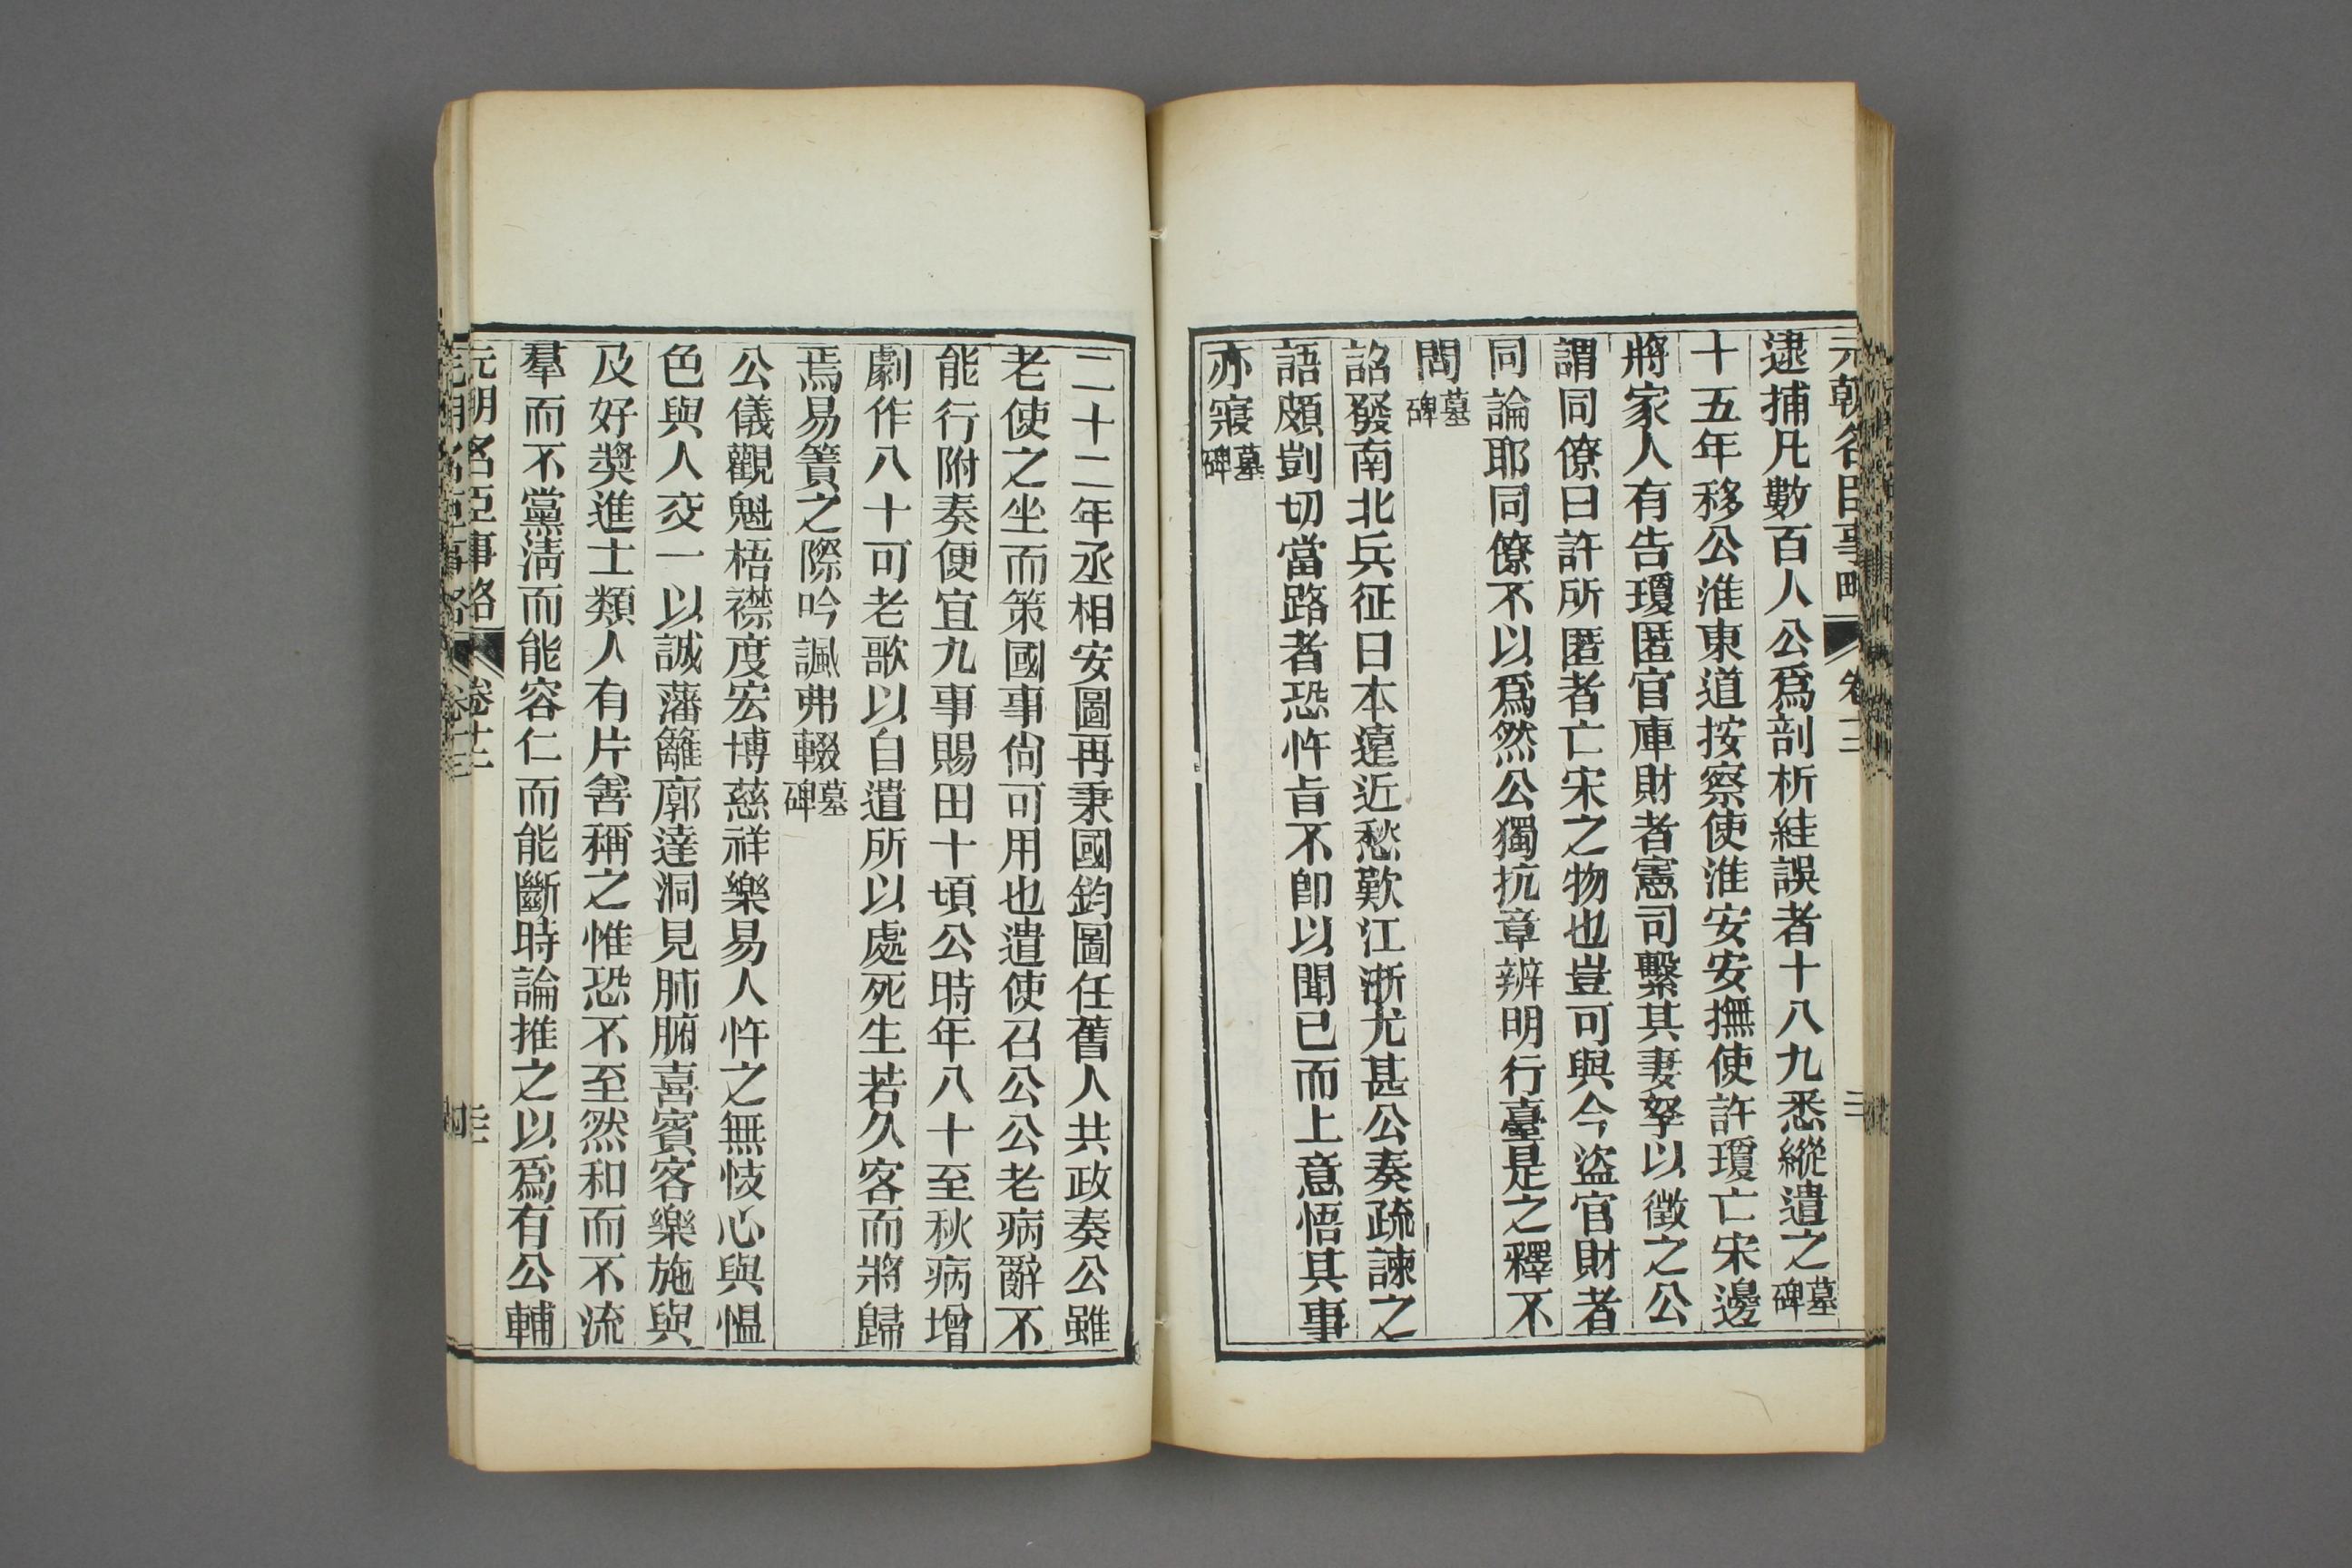 元朝名臣事略 卷十二
逮捕凡數百人公爲剖析絓誤者十八九悉縱遣之墓碑
十五年移公淮東道按察使淮安安撫使許瓊亡宋邊
將家人有告瓊匿官庫財者憲司繫其妻孥以徵之公
謂同僚曰許所匿者亡宋之物也豈可與今盜官財者
同論耶同僚不以爲然公獨抗章辨明行臺是之釋不
問墓碑
詔發南北兵征日本遠近愁歎江浙尤甚公奏疏諫之
語頗剴切當路者恐忤旨不卽以聞已而上意悟其事
亦寢墓碑
二十二年丞相安圖再秉國鈞圖任舊人共政奏公雖
老使之坐而策國事尙可用也遣使召公公老病辭不
能行附奏便宜九事賜田十頃公時年八十至秋病增
劇作八十可老歌以自遣所以處死生若久客而將歸
焉易簀之際吟諷弗輟墓碑
公儀觀魁梧襟度宏博慈祥樂易人忤之無忮心與慍
色與人交一以誠藩籬廓達洞見肺腑喜賓客樂施與
及好奬進士類人有片善稱之惟恐不至然和而不流
羣而不黨淸而能容仁而能斷時論推之以爲有公輔
元朝名臣事略 卷十二